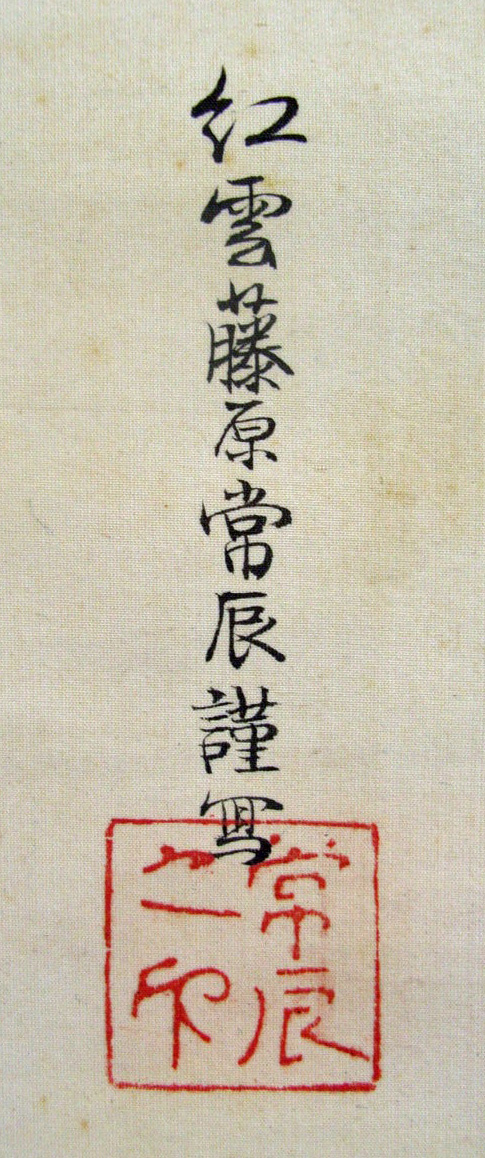 紅雲藤原常辰謹寫
常辰
之印